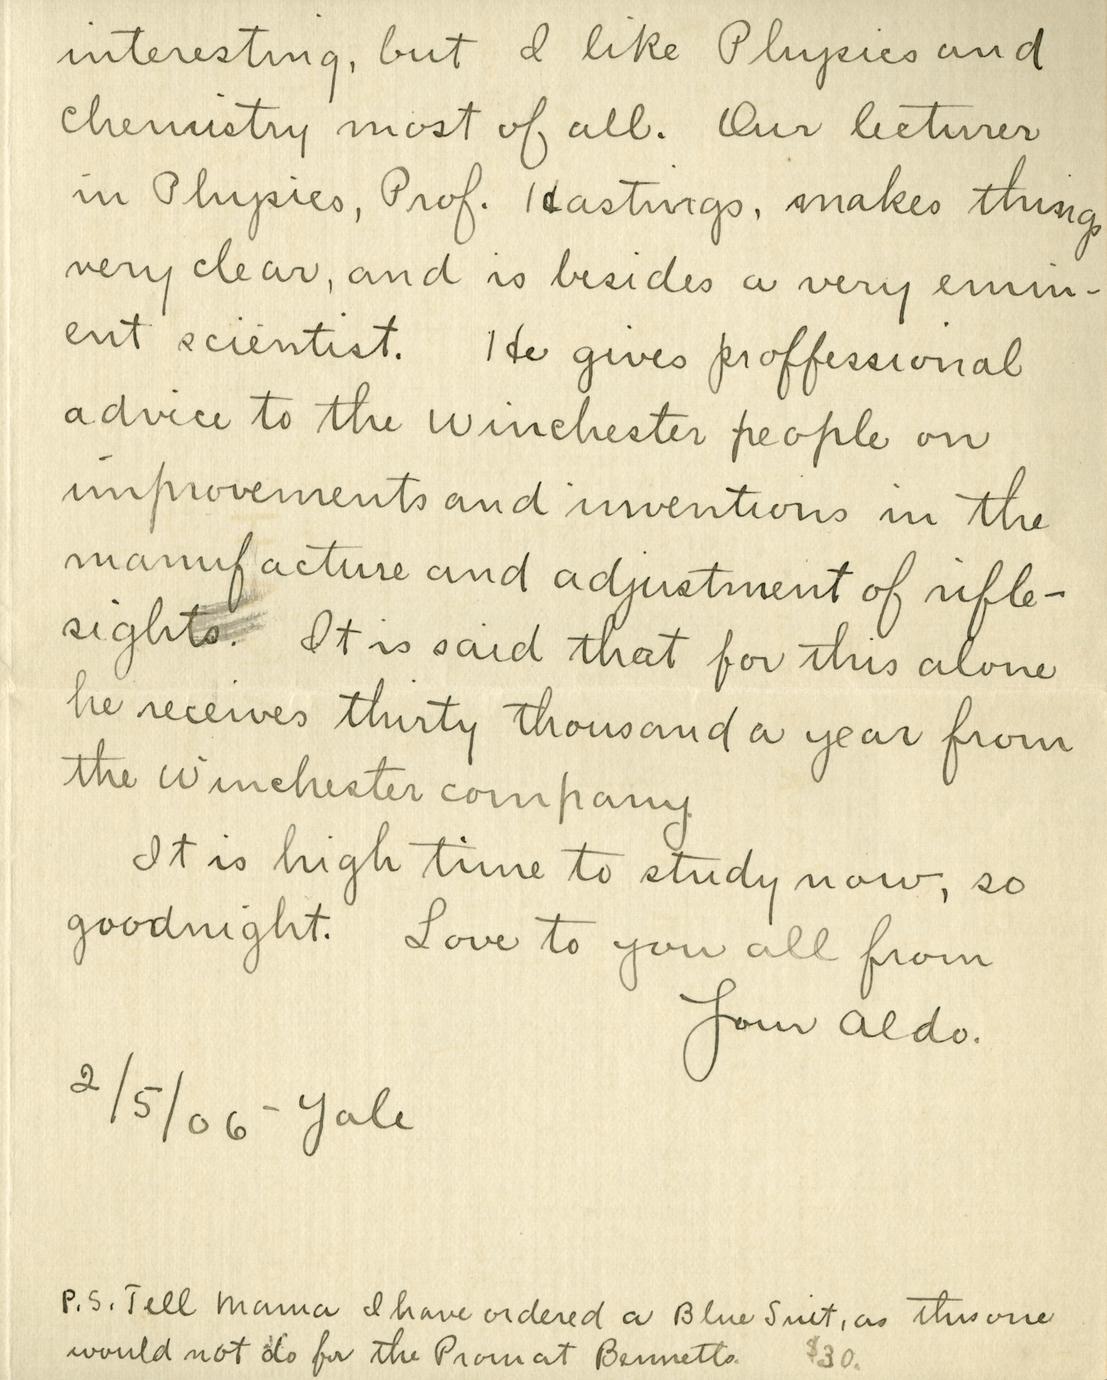 interesting, but I like Physics and
chemistry most of all. Our lecturer
in Physics, Prof. Hastings, makes things
very clear, and is besides a very emin-
ent scientist. He gives proffessional
advice to the Winchester people on
improvements and inventions in the
manufacture and adjustment of rifle-
sights. It is said that for this alone
he receives thirty thousand a year from
the Winchester company.
It is high time to study now, so
goodnight. Love to you all from
Your Aldo.
2/5/06 - Yale
P.S. Tell Mama I have ordered a Blue Suit, as this one
would not do for the Prom at Bennetts. $30.